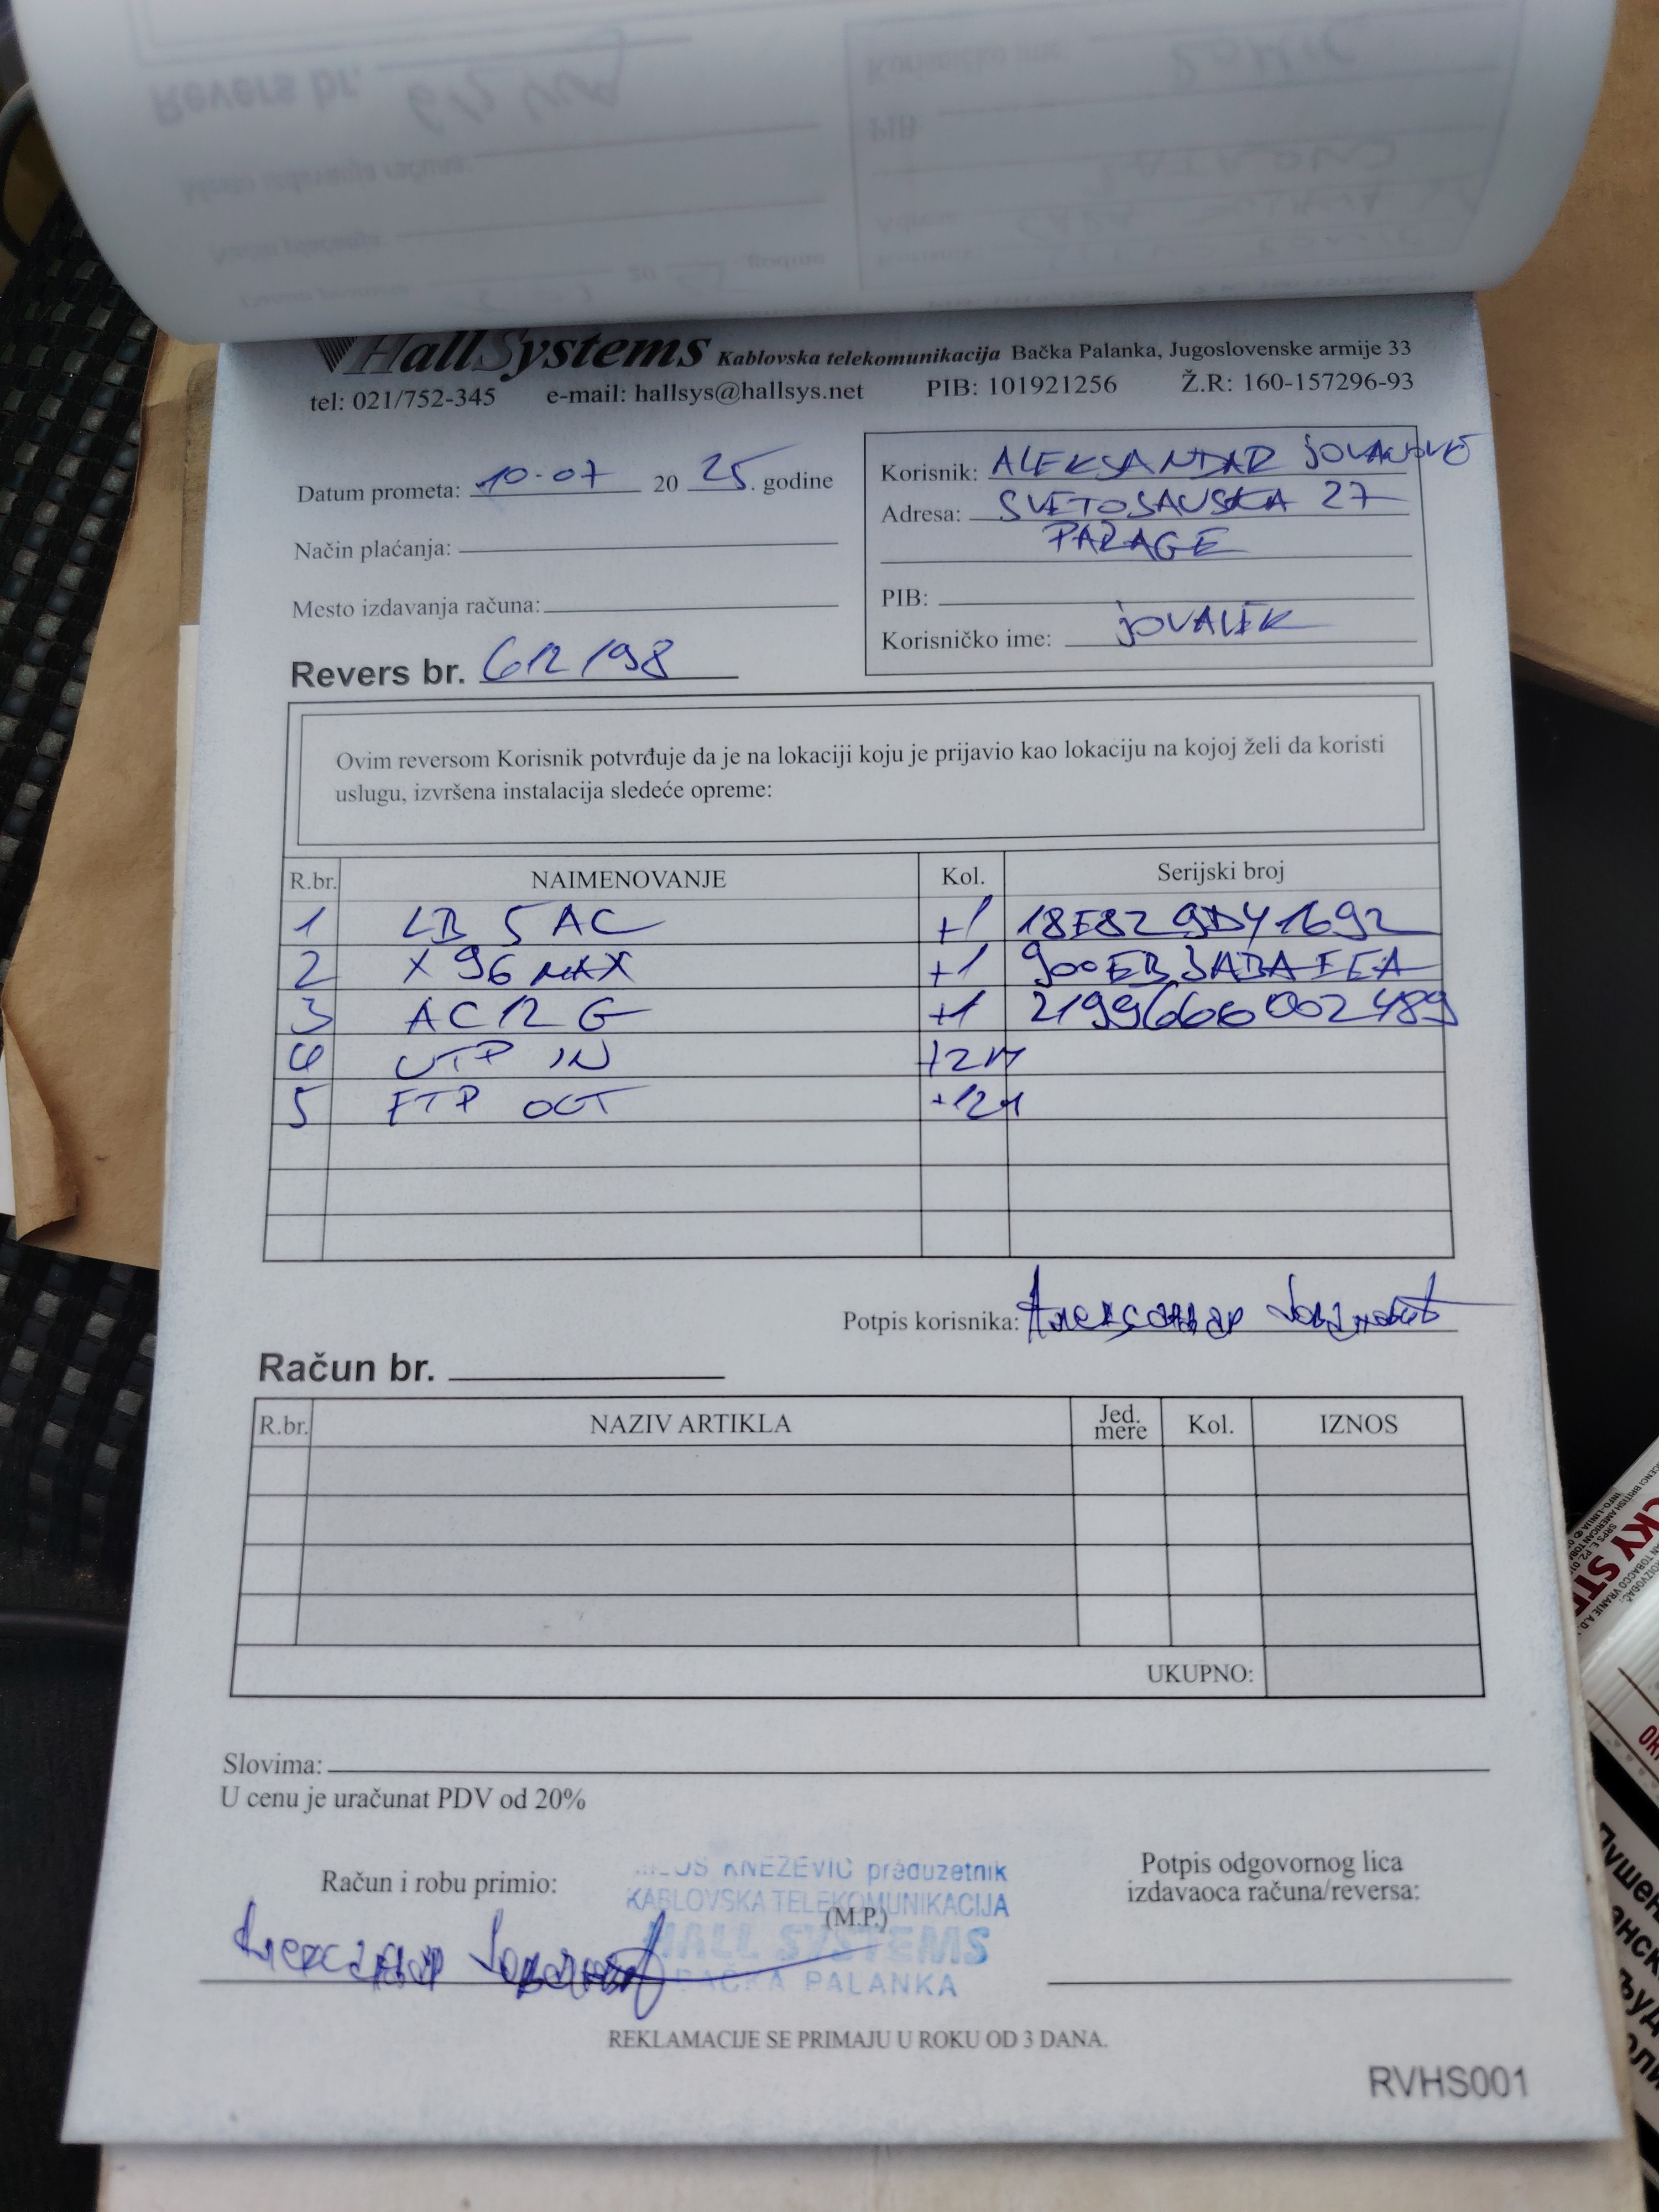 HallSystems Kablovska telekomunikacija Bačka Palanka, Jugoslovenske armije 33
tel: 021/752-345 e-mail: hallsys@hallsys.net PIB: 101921256 Ž.R: 160-157296-93
Datum prometa: 10-07 2025. godine
Način plaćanja:
Mesto izdavanja računa:
Revers br. 612/198
Korisnik: ALEKSANDAR JOVANOVIĆ
Adresa: SVETOSAVSKA 27
PARAGE
PIB:
Korisničko ime: jOVALEK
Ovim reversom Korisnik potvrđuje da je na lokaciji koju je prijavio kao lokaciju na kojoj želi da koristi
uslugu, izvršena instalacija sledeće opreme:
R.br. NAIMENOVANJE Kol. Serijski broj
1 LB 5 AC +1 18E829DY1692
2 X96 MAX +1 900EB3ABAEEA
3 AC12 G +1 2199666002489
4 UTP IN
5 FTP OUT
Potpis korisnika: Александар Јовановић
Račun br.
R.br. NAZIV ARTIKLA Jed. mere Kol. IZNOS
UKUPNO:
Slovima:
U cenu je uračunat PDV od 20%
Račun i robu primio:
Александар Јовановић
KNEŽEVIĆ preduzetnik
KABLOVSKA TELEKOMUNIKACIJA
(M.P.)
HALL SYSTEMS
BAČKA PALANKA
Potpis odgovornog lica
izdavaoca računa/reversa:
REKLAMACIJE SE PRIMAJU U ROKU OD 3 DANA.
RVHS001